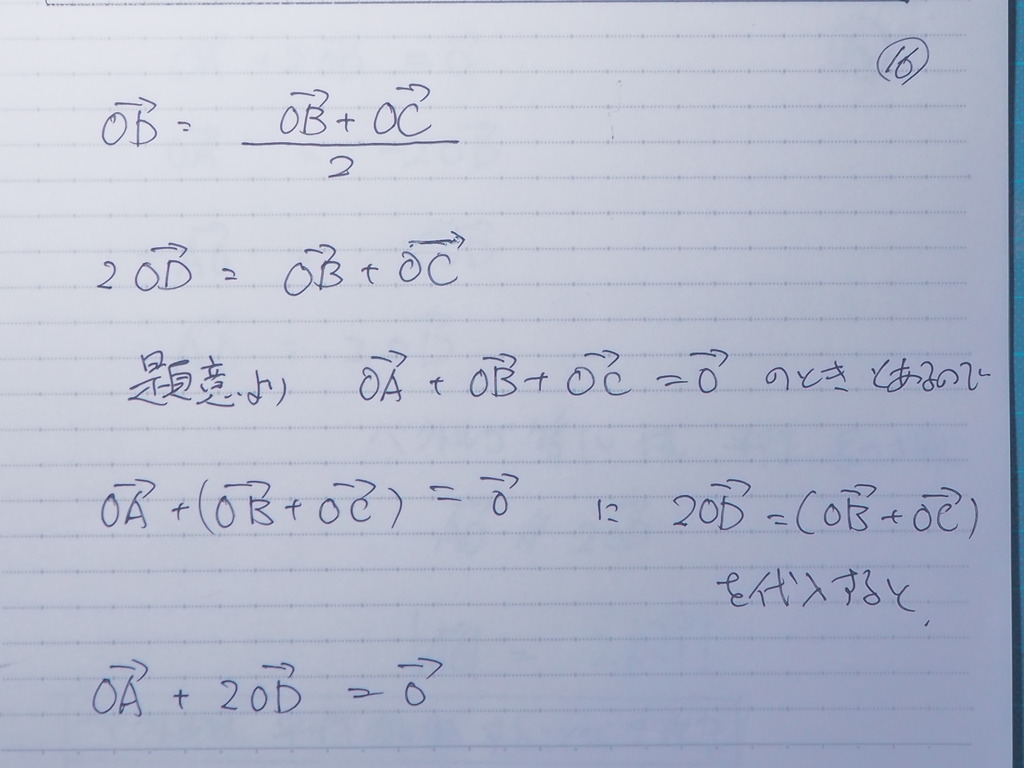 ⑯
→OD = (→OB + →OC) / 2
2→OD = →OB + →OC
題意より →OA + →OB + →OC = →0 のときとあるので
→OA + (→OB + →OC) = →0 に 2→OD = (→OB + →OC)
を代入すると、
→OA + 2→OD = →0